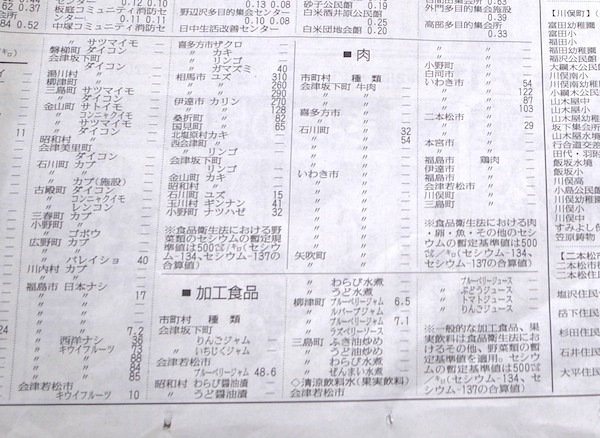 センター 0.12 0.10
62 0.37 板庭コミュニティ消防セ
ンター 0.11 0.11
84 0.52 中塚コミュニティ消防セ
センター 0.13 0.08
野辺沢多目的集会センター
0.10 0.08
日中生活改善センター
砂子公民館 0.19
白米酒井原公民館
0.21
白米団地会館 0.20
外門多目的集会施設
0.39
高部多目的集会所
0.33
【川俣町】
富田幼稚園
富田小
福田幼稚園
福田小
福沢公民館
サツマイモ ―
磐梯町 ダイコン ―
会津坂下町
ダイコン ―
湯川村 〃 ―
柳津町 〃 ―
三島町 サツマイモ ―
〃 ダイコン ―
金山町 サトイモ ―
〃 コンニャクイモ ―
〃 サツマイモ ―
〃 ダイコン ―
昭和村 〃 ―
会津美里町
ダイコン ―
石川町 カブ ―
〃 〃 ―
〃 カブ(施設) ―
古殿町 ダイコン ―
〃 コンニャクイモ ―
〃 レンコン ―
三春町 カブ ―
小野町 〃 ―
〃 ゴボウ ―
広野町 カブ ―
〃 バレイショ 40
川内村 カブ ―
福島市 日本ナシ ―
〃 〃 17
〃 〃 ―
〃 〃 ―
〃 〃 7.2
〃 西洋ナシ 36
〃 キウイフルーツ 73
〃 〃 88
〃 〃 84
〃 〃 85
会津若松市
キウイフルーツ 10
喜多方市ザクロ ―
〃 カキ ―
〃 リンゴ ―
〃 ガマズミ 40
相馬市 ユズ 310
〃 〃 260
〃 〃 290
伊達市 カリン 270
〃 〃 128
桑折町 〃 82
国見町 〃 65
北塩原村カキ ―
西会津町 〃 ―
〃 リンゴ ―
会津坂下町
リンゴ ―
金山町 カキ ―
昭和村 〃 ―
石川町 ユズ 15
玉川村 ギンナン 41
小野町 ナツハゼ 32
※食品衛生法における野
菜類のセシウムの暫定規
制値は500㏃/㌔(セシウ
ム-134、セシウム-137
の合算値)
■ 加工食品
市町村 種類
会津坂下町
りんごジャム ―
〃 いちじくジャム ―
会津若松市
ブルーベリージャム 48.6
昭和村 わらび醤油漬 ―
〃 うど醤油漬 ―
■ 肉
市町村 種類
会津坂下町 牛肉 ―
〃 〃 ―
喜多方市 〃 ―
〃 〃 ―
石川町 〃 32
〃 〃 54
〃 〃 ―
いわき市 〃 ―
矢吹町 〃 ―
〃 〃 ―
小野町 〃 ―
白河市 〃 ―
いわき市 〃 54
〃 〃 122
〃 〃 87
〃 〃 103
二本松市 〃 ―
〃 〃 29
本宮市 〃 ―
〃 〃 ―
福島市 鶏肉 ―
伊達市 〃 ―
会津若松市 〃 ―
川俣町 〃 ―
三島町 〃 ―
※食品衛生法における肉
・卵・魚・その他のセシ
ウムの暫定基準値は500
㏃/㌔(セシウム-134、
セシウム-137の合算値)
〃 わらび水煮 ―
〃 うど水煮 ―
柳津町 ブルーベリージャム 6.5
〃 ルバーブジャム ―
〃 ブルーベリージャム 7.1
〃 ラズベリーソース ―
三島町 ふき油炒め ―
〃 うど油炒め ―
〃 わらび水煮 ―
〃 ぜんまい水煮 ―
◇清涼飲料水(果実飲料)
会津若松市
ブルーベリージュース ―
〃 ぶどうジュース ―
〃 トマトジュース ―
〃 りんごジュース ―
※一般的な加工食品、果
実飲料は食品衛生法にお
けるその他、野菜類の暫
定基準値を適用。セシウ
ムの暫定基準値は500㏃
/㌔(セシウム-134、セ
シウム-137の合算値)
大綱木公民館
川俣南小
川俣南幼稚園
小綱木公民館
山木屋中
山木屋幼稚園
坂下集会所
山木屋水境
行合道交差
田代・羽附
飯坂水境
飯坂小
川俣高
小島公民館
川俣幼稚園
川俣小
川俣中
すみよし保
笠原鋳物
【二本松市
二本松市
塩沢住民
岳下住民
杉田住民
石井住民
大平住民